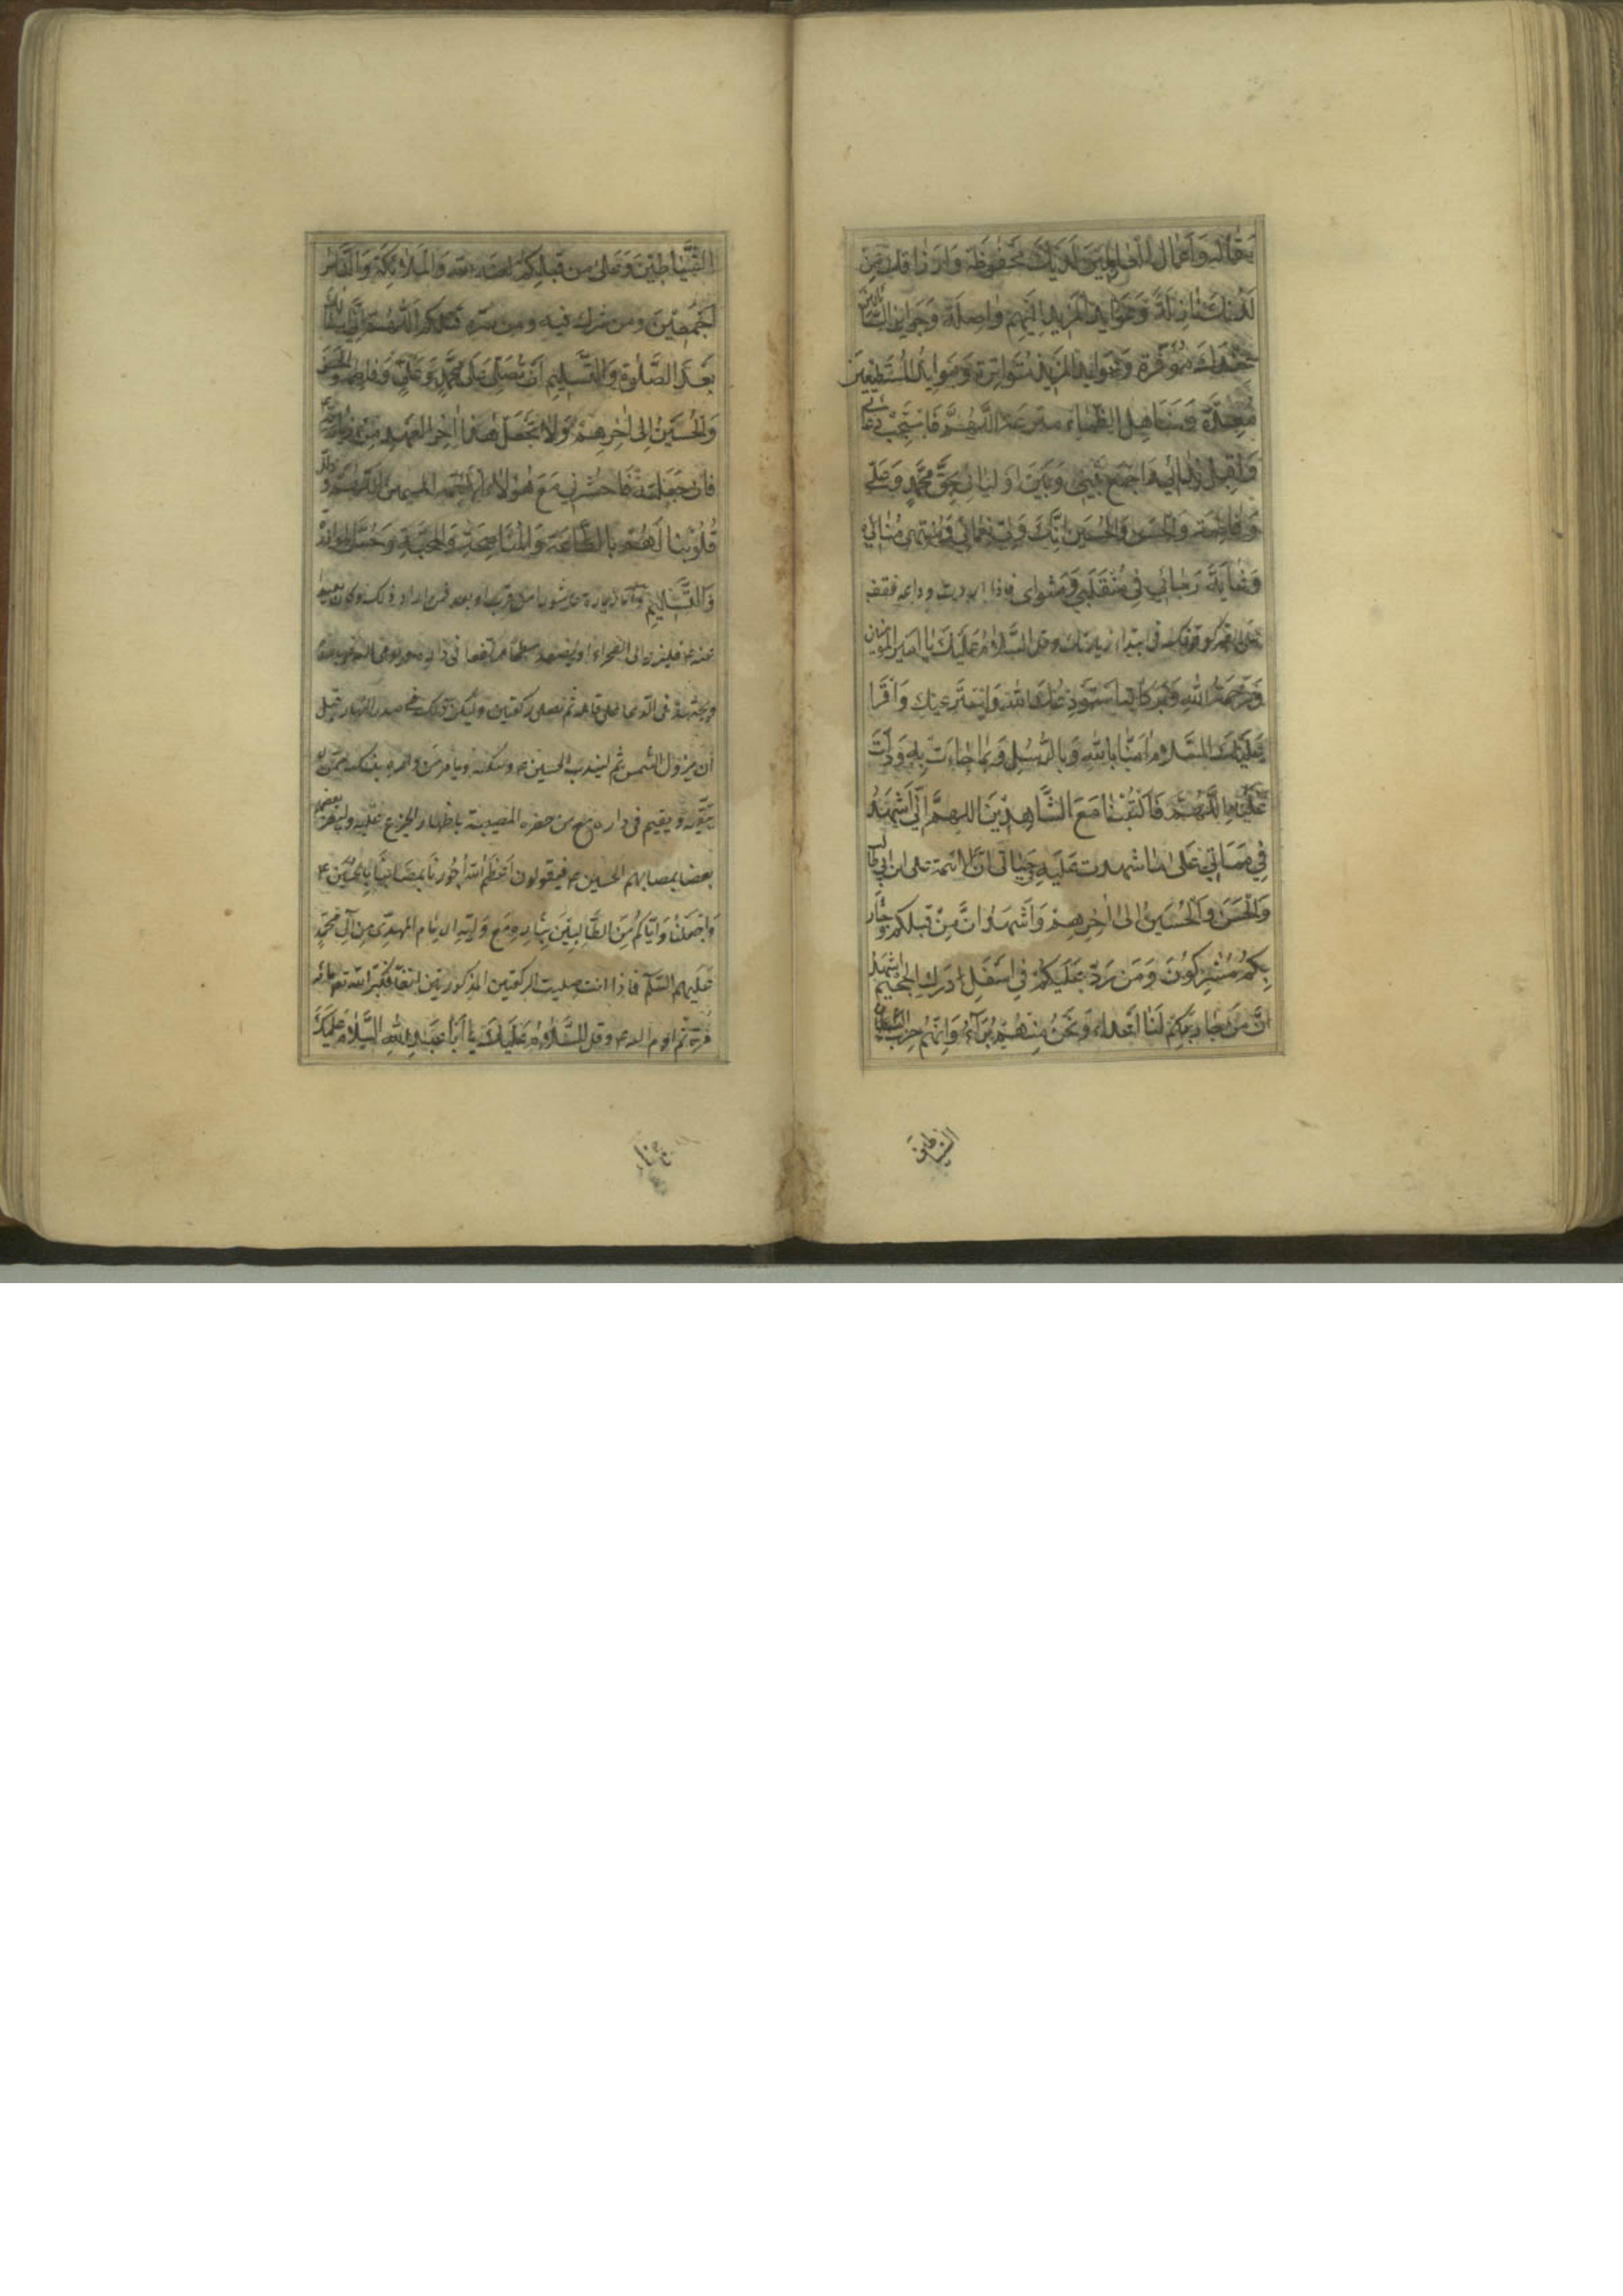 مُقَالَة وَاَعْمَالَ الْعَامِلِينَ لَدَيْكَ مَحْفُوظَة وَاَرْزَاقَكَ مِنْ
لَدُنْكَ نَازِلَةً وَعَوَائِدَ الْمَزِيدِ اِلَيْهِمْ وَاصِلَة وَجَوَائِزَ السَّائِلِينَ
عِنْدَكَ مُوَفَّرَة وَعَوَائِدَ الْمَزِيدِ مُتَوَاتِرَة وَمَوَائِدَ الْمُسْتَطْعِمِينَ
مُعَدَّة وَمَنَاهِلَ الظِّمَاءِ مترعة اَللّٰهُمَّ فَاسْتَجِبْ دُعَائِي
وَاقْبَلْ ثَنَائِي وَاجْمَعْ بَيْنِي وَبَيْنَ اَوْلِيَائِي بِحَقِّ مُحَمَّدٍ وَعَلِيٍّ
وَفَاطِمَةَ وَالْحَسَنِ وَالْحُسَيْنِ اِنَّكَ وَلِيُّ نَعْمَائِي وَمُنْتَهٰى مُنَائِي
وَغَايَةُ رَجَائِي فِي مُنْقَلَبِي وَمَثْوَاىَ فاذا اردت وداعه فقف
على القبر كوقوفك فى ابتداء زيارتك وقل اَلسَّلَامُ عَلَيْكَ يَا اَمِيرَ الْمُؤْمِنِينَ
وَرَحْمَةُ اللّٰهِ وَبَرَكَاتُهُ اَسْتَوْدِعُكَ اللّٰهَ وَاَسْتَرْعِيكَ وَاَقْرَأُ
عَلَيْكَ السَّلَامَ اٰمَنَّا بِاللّٰهِ وَبِالرُّسُلِ وَبِمَا جَاءَتْ بِهِ وَدَلَّتْ
عَلَيْهِ اَللّٰهُمَّ فَاكْتُبْنَا مَعَ الشَّاهِدِينَ اللهمَّ اِنِّي اَشْهَدُ
فِي مَمَاتِي عَلٰى مَا شَهِدت عَلَيْهِ فِي حَيَاتِي اَنَّ الْاَئِمَّة علی ابن ابی طالب
وَالْحَسَنَ وَالْحُسَيْنَ الى اٰخِرِهِمْ وَاَشْهَدُ اَنَّ مَنْ قَتَلَكُمْ وَحَارَ
بَكُمْ مُشْرِكُونَ وَمَنْ رَدَّ عَلَيْكُمْ فِي اَسْفَلِ دَرَكِ الْجَحِيمِ اَشْهَدُ
اَنَّ مَنْ حَارَبَكُمْ لَنَا اَعْدَاء وَنَحْنُ مِنْهُمْ بُرَآءُ وَاِنَّهُمْ حِزْبُ الشَّيْطَانِ
الشَّيَاطِينَ
الشَّيَاطِينَ وَعَلٰى مَنْ قَتَلَكُمْ لعنة الله وَالْمَلَائِكَة وَالنَّاسِ
اَجْمَعِينَ وَمَنْ شَرِكَ فِيهِ وَمَنْ سَرَّهُ قَتْلُكُمْ اَللّٰهُمَّ اِنِّي اَسْاَلُكَ
بَعْدَ الصَّلٰوةِ وَالتَّسْلِيمِ اَنْ تُصَلِّيَ عَلٰى مُحَمَّدٍ وَعَلِيٍّ وَفَاطِمَة وَالْحَسَنِ
وَالْحُسَيْنِ اِلٰى اٰخِرِهِمْ وَلَا تَجْعَل هٰذَا اٰخِرَ الْعَهْدِ مِنْ زِيَارَتِهِ
فَاِنْ جَعَلْتَهُ فَاحْشُرْنِي مَعَ هٰؤُلَاءِ الْاَئِمَّة المسمين اَللّٰهُمَّ وَذَلِّلْ
قُلُوبَنَا لَهُمْ بِالطَّاعَةِ وَالْمُنَاصَحَةِ وَالْمَحَبَّةِ وَحُسْنِ الْمُوَازَرَةِ
وَالتَّسْلِيمِ واما زيارة عاشورا من قرب او بعد فمن اراد ذلك وكان بعيدا
عنه ع فليبرز الى الصحراء او يصعد سطحا مرتفعا فى داره ويومى اليه بالسلام
ويجتهد فى الدعاء على قاتله ثم يصلى ركعتين وليكن ذلك فى صدر النهار قبل
ان يزول الشمس ثم ليندب الحسين ع ويبكيه ويامر من فى داره بذلك ممن لا
يتّقيه ويقيم فى داره مع من حضره المصيبة باظهار الجزع عليه وليعزّ بعضهم
بعضا بمصابهم الحسين ع فيقولون اَعْظَمَ اللّٰهُ اُجُورَنَا بِمُصَابِنَا بِالْحُسَيْنِ ع
وَاجْعَلْنَا وَاِيَّاكُمْ مِنَ الطَّالِبِينَ بِثَارِهِ مَعَ وَلِيِّهِ الْاِمَامِ الْمَهْدِيِّ مِنْ اٰلِ مُحَمَّدٍ
عَلَيْهِمُ السَّلَام فاذا انت صليت الركعتين المذكورتين انفا فكبّر الله تعالى مائة
مرة ثم اوم اليه ع وقل اَلسَّلَامُ عَلَيْكَ يَا اَبَا عَبْدِ اللّٰهِ اَلسَّلَامُ عَلَيْكَ